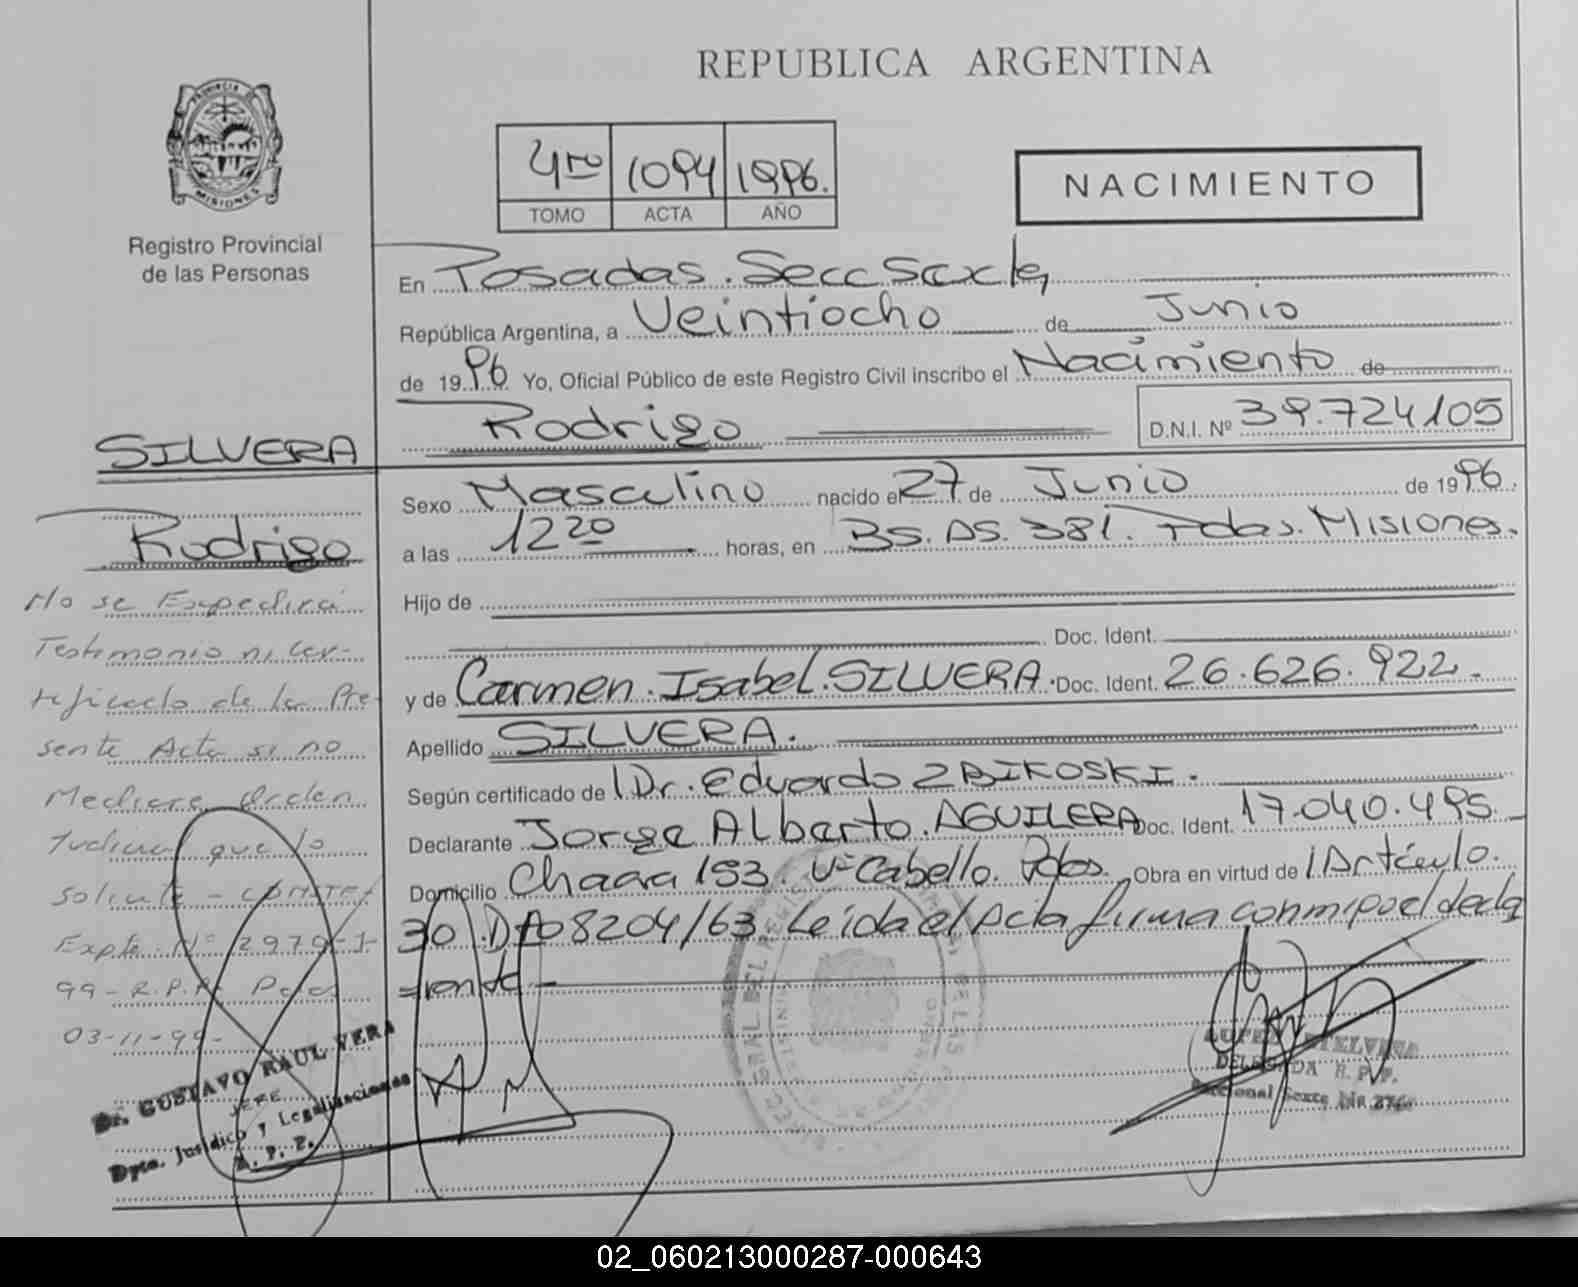 REPUBLICA ARGENTINA
PROVINCIA DE
MISIONES
Registro Provincial
de las Personas
4to 1094 1996.
TOMO ACTA AÑO
NACIMIENTO
En Posadas. Secc Sexta
República Argentina, a Veintiocho de Junio
de 1996 Yo, Oficial Público de este Registro Civil inscribo el Nacimiento de
Rodrigo D.N.I. Nº 39.724105
Sexo Masculino nacido el 27 de Junio de 1996.
a las 12 20 horas, en BS. AS. 381. Pdas. Misiones.
Hijo de
Doc. Ident.
y de Carmen. Isabel. SILVERA. Doc. Ident. 26.626.922.
Apellido SILVERA.
Según certificado de Dr. Eduardo ZBIKOSKI.
Declarante Jorge Alberto. AGUILERA Doc. Ident. 17.040.495.
Domicilio Chacra 153. Vª Cabello. Pdas. Obra en virtud de Artículo.
30 8204/63. Leida el Acta firma conmigo el decla
=rante
SILVERA
Rodrigo
No se Expedirá
Testimonio ni Cer-
tificado de la Pre-
sente Acta si no
Mediare Orden
Judicial que lo
solicite -
Expte. Nº 2979-1-
99 - R.P.P. Pdas
03-11-99-
Dr. GUSTAVO RAUL VERA
JEFE
Dpto. Jurídico y Legalizaciones
R. P. P.
DELEGADA R. P. P.
Seccional Sexta
02_060213000287-000643